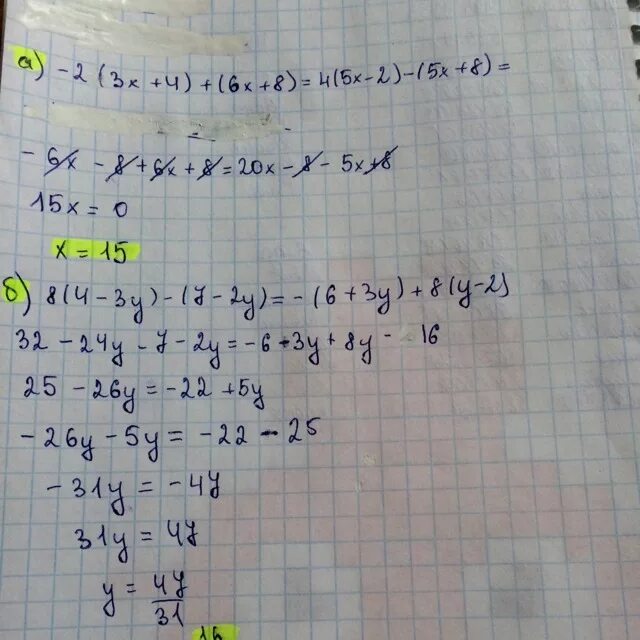 а) -2 (3x + 4) + (6x + 8) = 4(5x - 2) - (5x + 8) =
- 6x - 8 + 6x + 8 = 20x - 8 - 5x + 8
15x = 0
x = 15
б) 8(4 - 3y) - (7 - 2y) = - (6 + 3y) + 8(y - 2)
32 - 24y - 7 - 2y = -6 - 3y + 8y - 16
25 - 26y = -22 + 5y
- 26y - 5y = -22 - 25
- 31y = - 47
31y = 47
y = 47/31